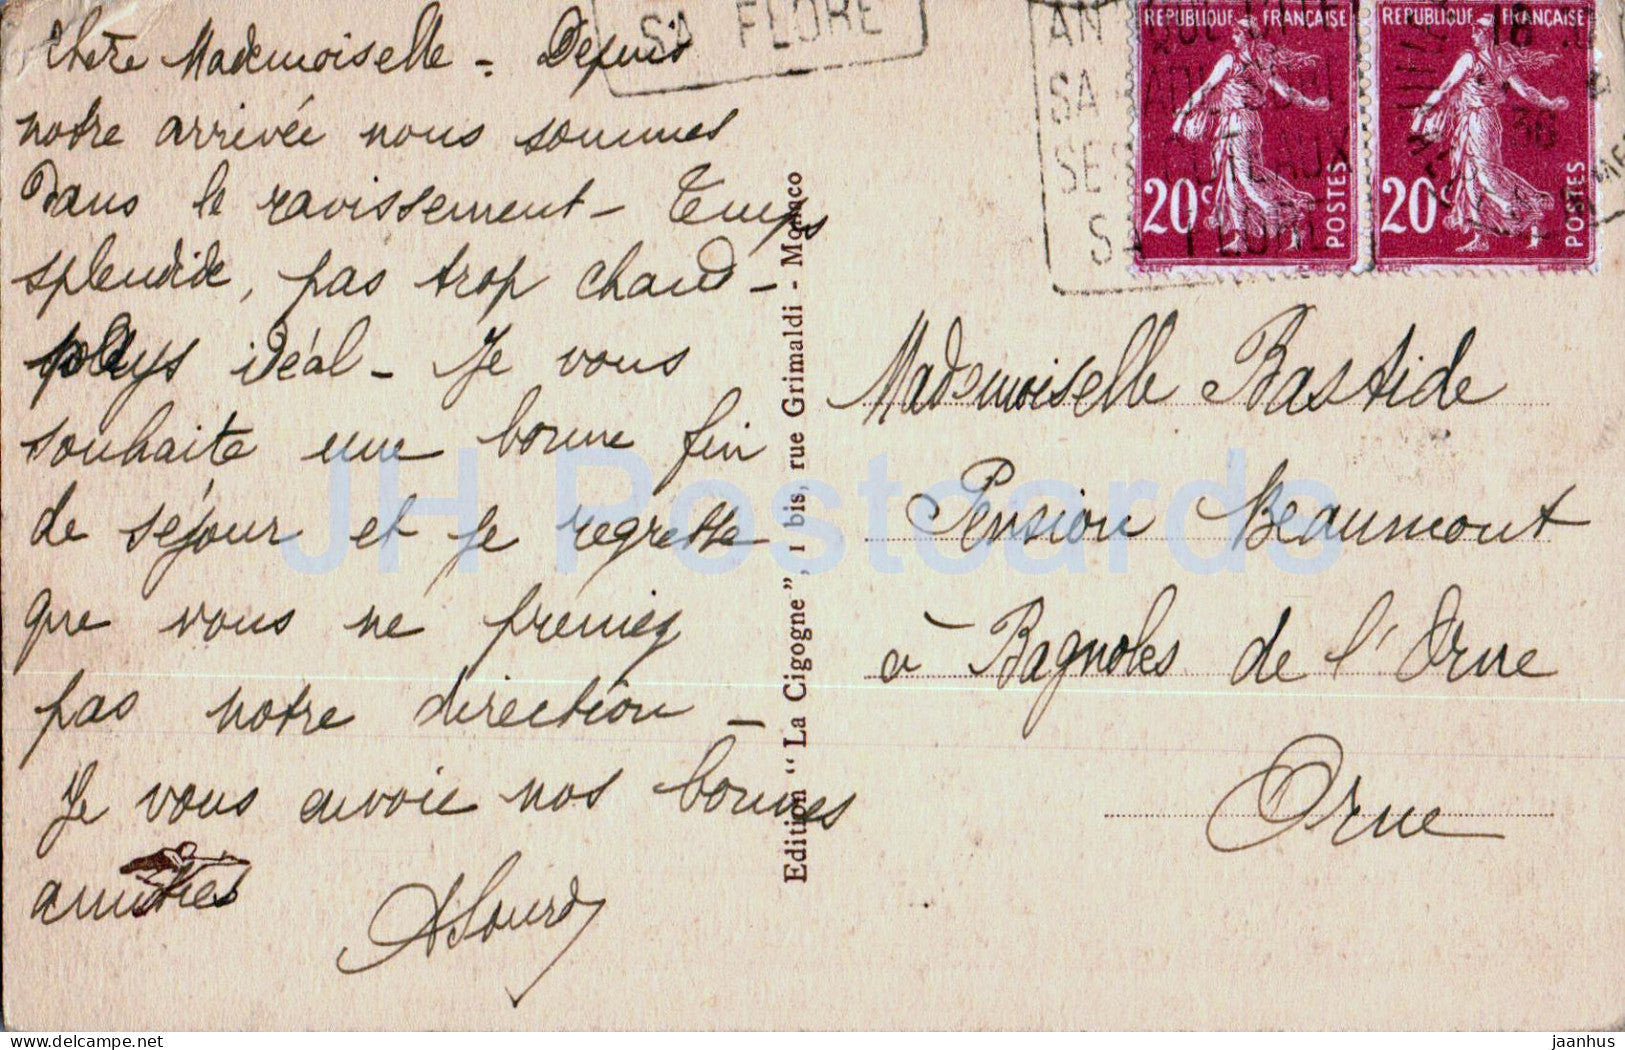 Chère Mademoiselle - Depuis
notre arrivée nous sommes
dans le ravissement - Temps
splendide, pas trop chaud -
pays idéal - Je vous
souhaite une bonne fin
de séjour et je regrette
que vous ne preniez
pas notre direction -
Je vous envoie nos bonnes
amitiés
Edition "La Cigogne", 1 bis, rue Grimaldi - Monaco
SA FLORE
AN
SA
SES COTEAUX
SA FLORE
REPUBLIQUE FRANÇAISE
20c
POSTES
REPUBLIQUE FRANÇAISE
20c
POSTES
18
36
Mademoiselle Bastide
Pension Beaumont
à Bagnoles de l'Orne
Orne
JH Postcards
hippostcard.com
jaanhus